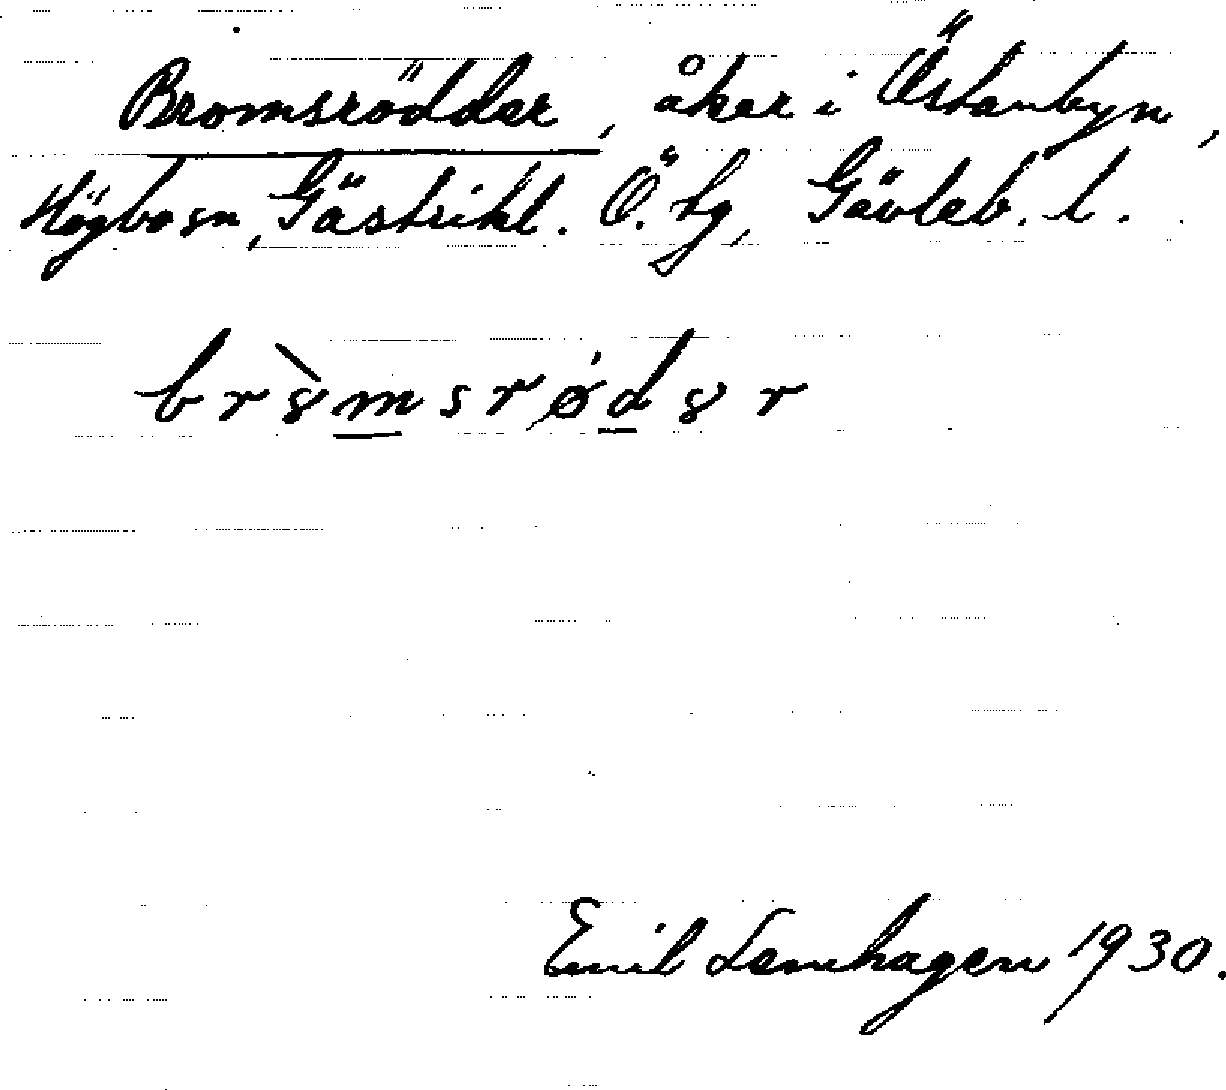 Bromsrödder, åker i Östanbyn,
Högbo sn, Gästrikl. Ö. tg, Gävleb. l.
br8̀msrødər
Emil Lenhagen 1930.